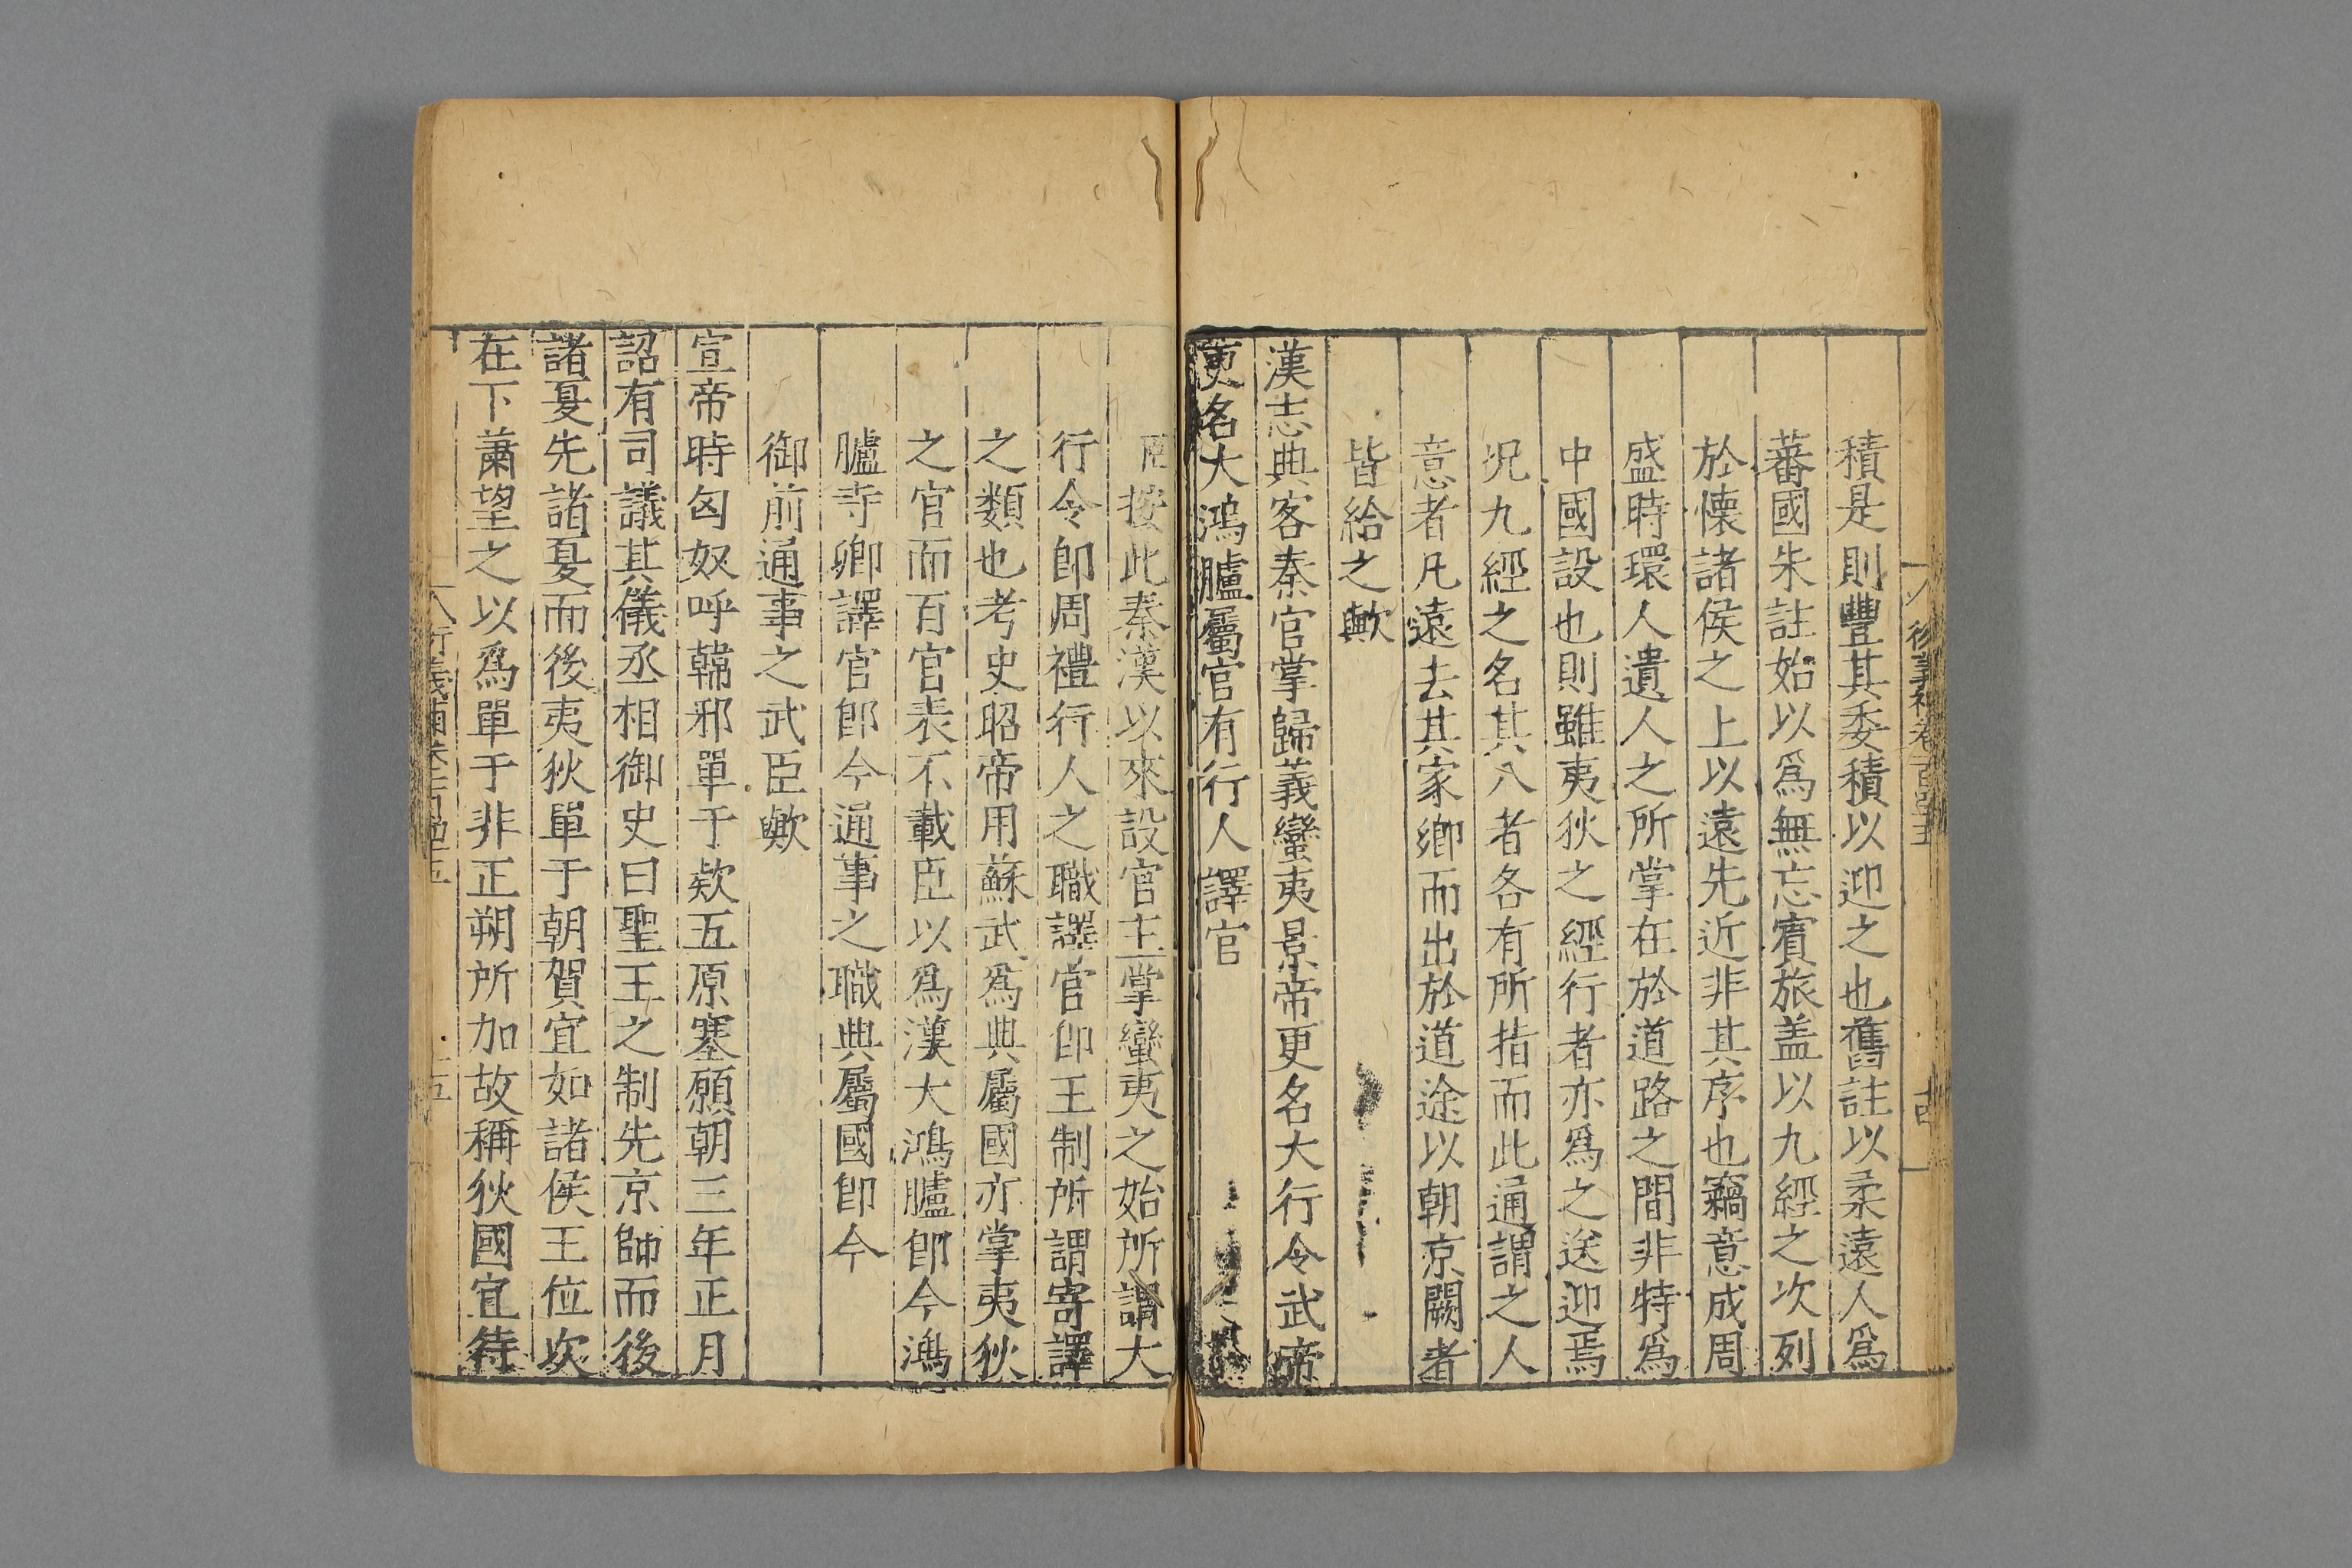 積是則豐其委積以迎之也舊註以柔遠人爲
蕃國朱註始以爲無忘賓旅盖以九經之次列
於懷諸侯之上以遠先近非其序也竊意成周
盛時環人遺人之所掌在於道路之間非特爲
中國設也則雖夷狄之經行者亦爲之送迎焉
况九經之名其八者各有所指而此通謂之人
意者凡遠去其家鄉而出於道途以朝京闕者
皆給之歟
漢志典客秦官掌歸義蠻夷景帝更名大行令武帝
更名大鴻臚屬官有行人譯官
按此秦漢以來設官主掌蠻夷之始所謂大
行令卽周禮行人之職譯官卽王制所謂寄譯
之類也考史昭帝用蘇武爲典屬國亦掌夷狄
之官而百官表不載臣以爲漢大鴻臚卽今鴻
臚寺卿譯官卽今通事之職典屬國卽今
御前通事之武臣歟
宣帝時匈奴呼韓邪單于欵五原塞願朝三年正月
詔有司議其儀丞相御史曰聖王之制先京師而後
諸夏先諸夏而後夷狄單于朝賀宜如諸侯王位次
在下蕭望之以爲單于非正朔所加故稱狄國宜待